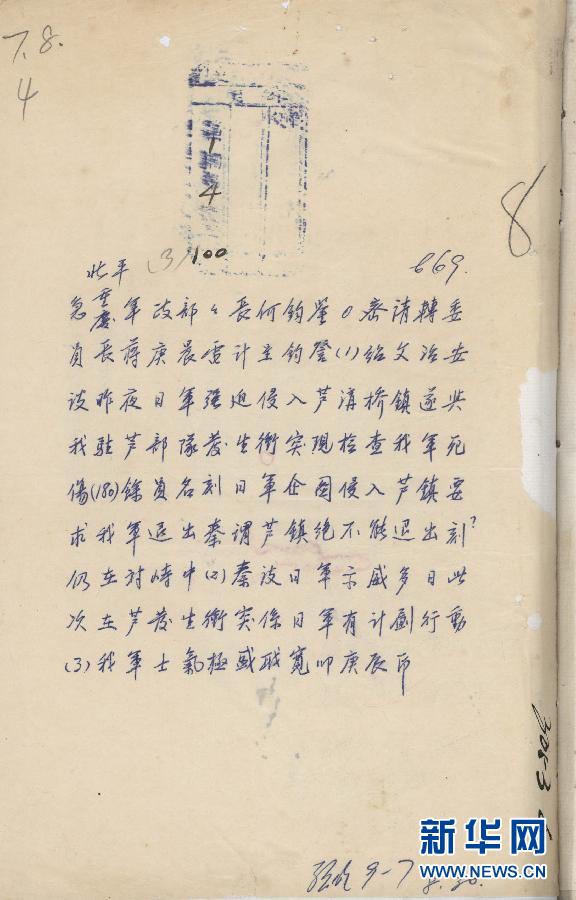 7.8.
4
14
8
北平 (3)/100 669.
急重慶軍政部々長何鈞鑒0密請轉委
員長蔣庚晨電計呈鈞詧(1)紹文冶安
談昨夜日軍强迫侵入芦溝桥鎮遂與
我駐芦部隊發生衝突現检查我軍死
傷(180)餘員名刻日軍企圖侵入芦鎮要
求我軍退出秦謂芦鎮绝不能退出刻?
仍在对峙中(2)秦談日軍示威多日此
次在芦發生衝突係日軍有计劃行動
(3)我軍士氣極盛职寬叩庚辰印
9-7
8.30.
新华网
WWW.NEWS.CN